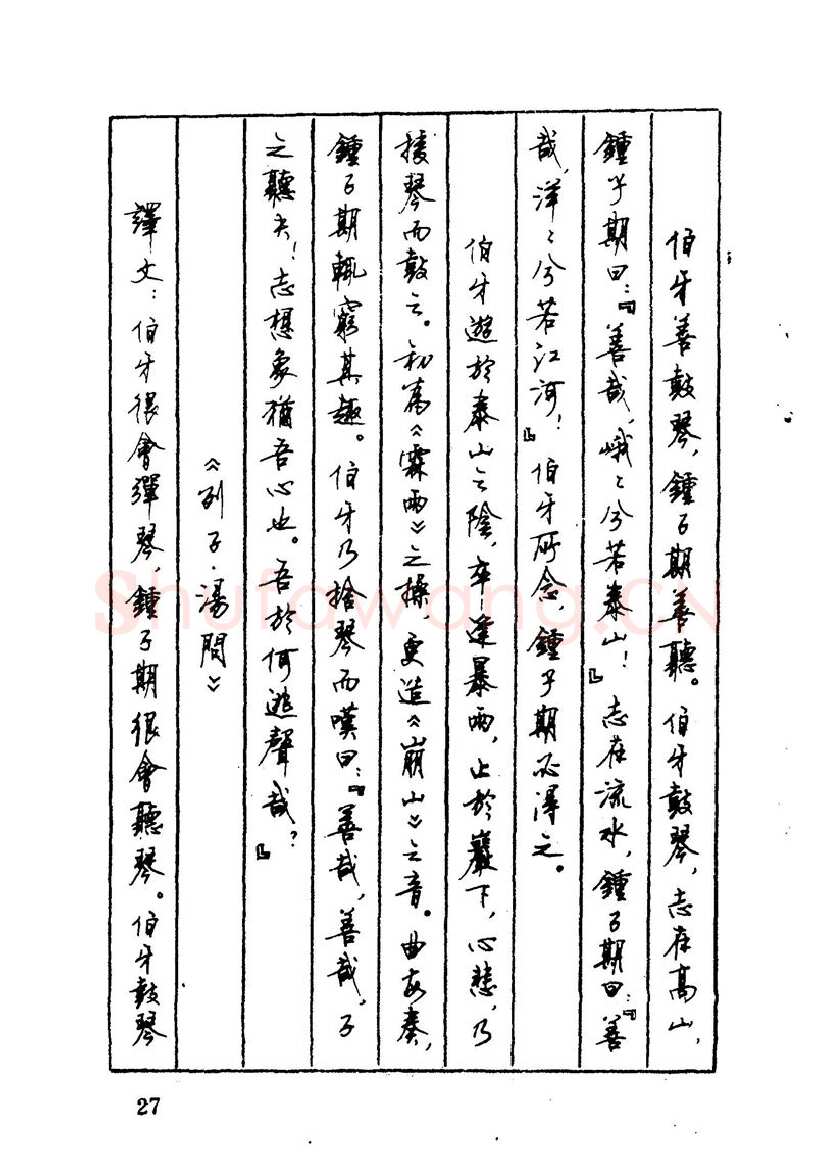 伯牙善鼓琴，鍾子期善聽。伯牙鼓琴，志在高山，
鍾子期曰：『善哉，峨〻兮若泰山！』志在流水，鍾子期曰：『善
哉，洋〻兮若江河！』伯牙所念，鍾子期必得之。
伯牙遊於泰山之陰，卒逢暴雨，止於巖下，心悲，乃
援琴而鼓之。初為《霖雨》之操，更造《崩山》之音。曲每奏，
鍾子期輒窮其趣。伯牙乃捨琴而嘆曰：『善哉，善哉。子
之聽夫！志想象猶吾心也。吾於何逃聲哉？』
《列子·湯問》
譯文：伯牙很會彈琴，鍾子期很會聽琴。伯牙鼓琴
27
Shufawang.CN